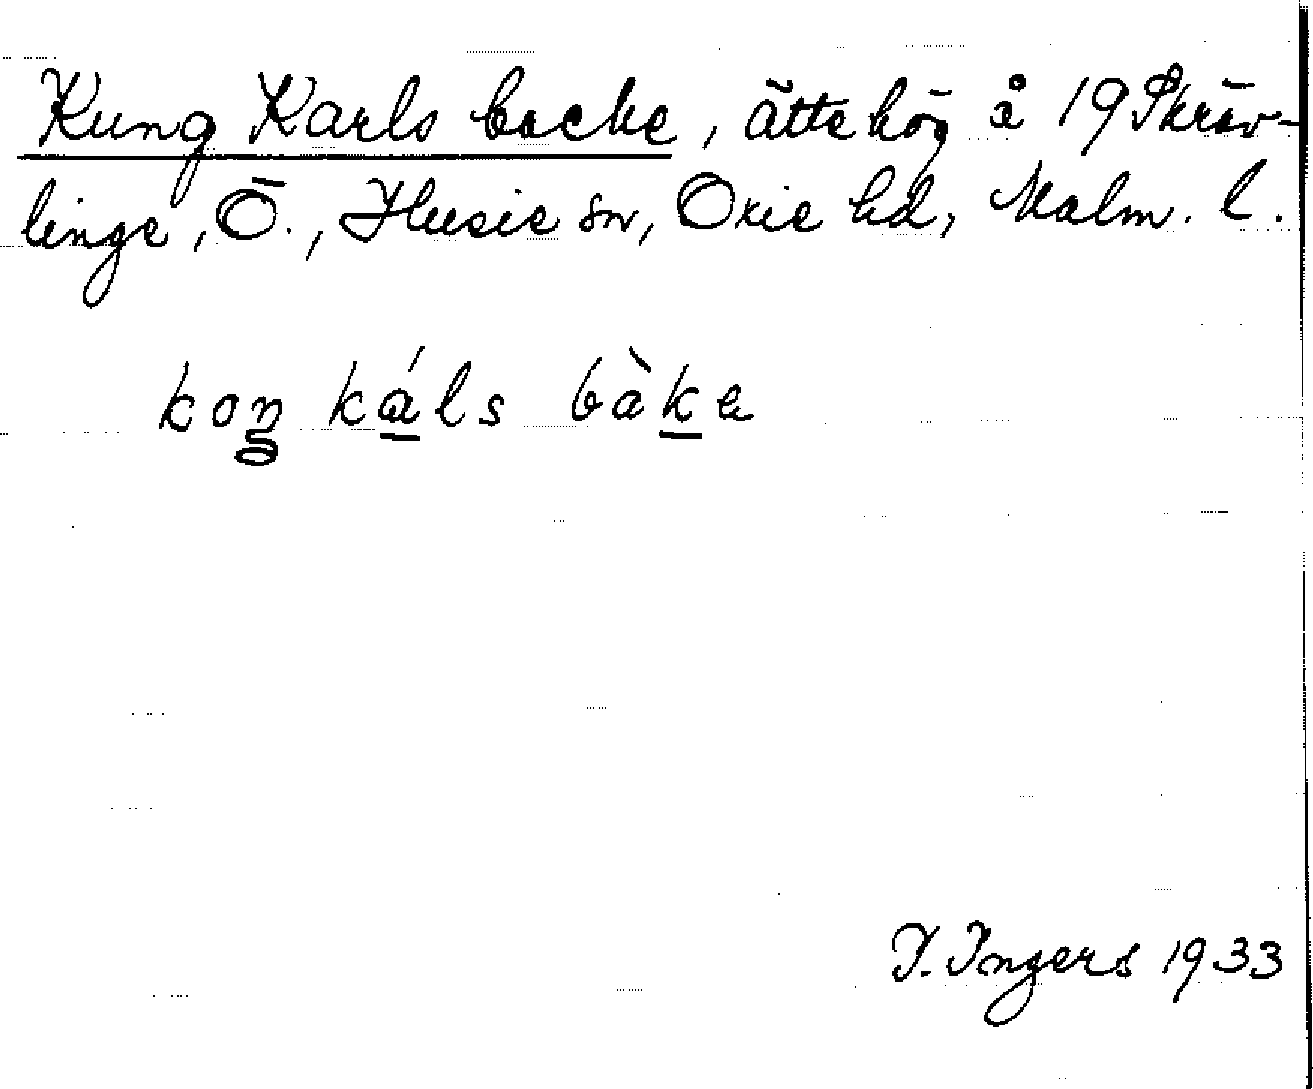 Kung Karls backe, ättehög å 19 Skräv-
linge, Ö., Husie sn, Oxie hd, Malm. l.
koŋ káls bàkа
I. Ingers 1933